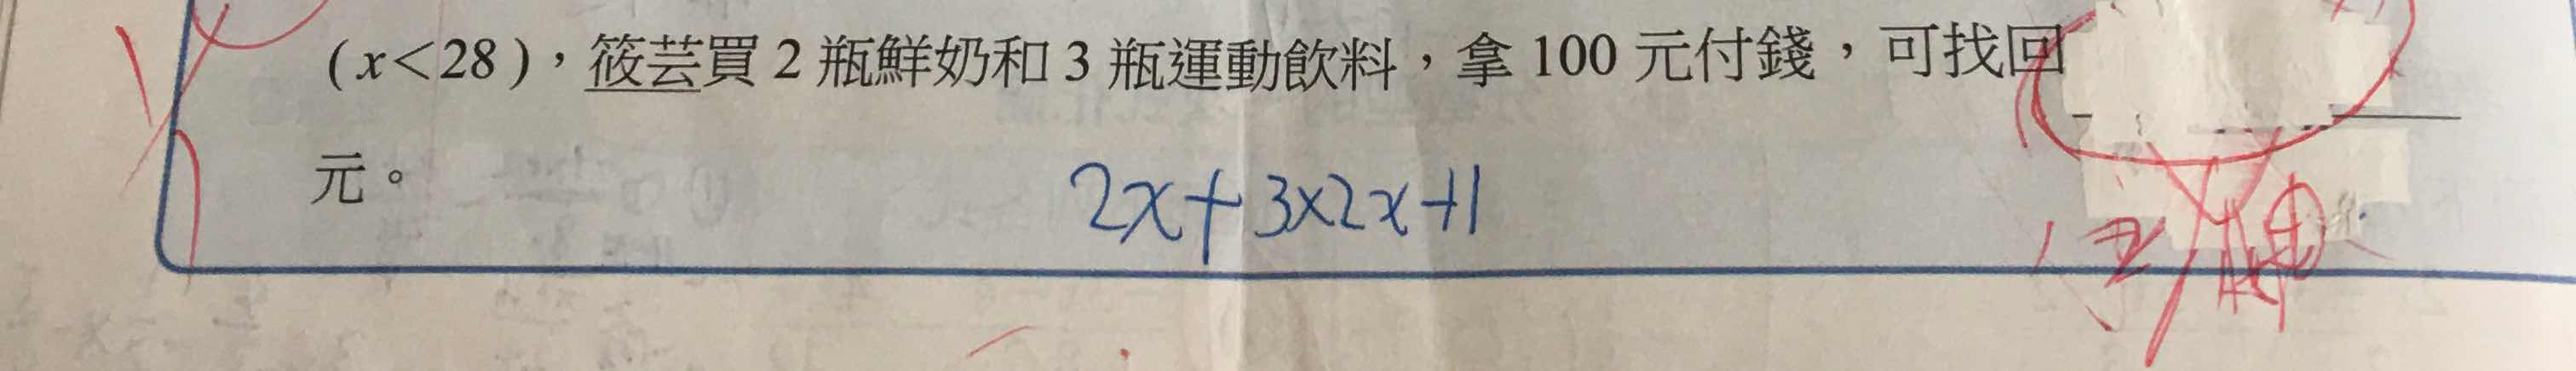 (x<28)，筱芸買 2 瓶鮮奶和 3 瓶運動飲料，拿 100 元付錢，可找回
元。
2x+3×2x+1